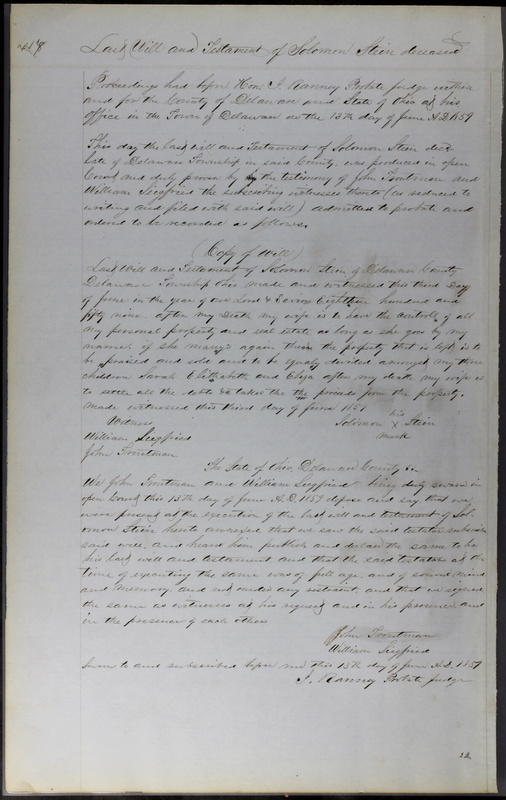 418
Last Will and Testament of Solomon Stein deceased
Proceedings had before Hon. J. Ranney Probate judge within
and for the County of Delaware and State of Ohio at his
office in the Town of Delaware on the 13th day of June A.D. 1859
This day the last will and Testament of Solomon Stein decd
late of Delaware Township in said County was produced in open
Court and duly proven by the testimony of John Troutman and
William Seigfried the subscribing witnesses thereto (as reduced to
writing and filed with said will) admitted to probate and
ordered to be recorded as follows.
(Copy of Will)
Last Will and Testament of Solomon Stein of Delaware County
Delaware Township Ohio made and witnessed this third day
of June in the year of our Lord & Savior Eighteen hundred and
fifty nine. after my Death my wife is to have the control of all
my personal property and real estate as long as she goes by my
name, if she marrys again then the property that is left is to
be praised and sold and to be equaly divided amongst my three
children Sarah Elizabeth and Eliza after my death my wife is
to settle all the debts & takes the the proceeds from the property.
Made witnessed this third day of June 1859
Witness
his
Solomon X Stein
mark
William Seigfried
John Troutman
The State of Ohio, Delaware County Ss.
We John Troutman and William Seigfried being duly sworn in
open Court this 13th day of June A.D. 1859 depose and say that we
were present at the execution of the last will and testament of Sol-
omon Stein hereto annexed that we saw the said testator subscribe
said will, and heard him publish and declare the same to be
his last will and testament and that the said testator at the
time of executing the same was of full age, and of sound mind
and memory and not under any restraint and that we signed
the same as witnesses at his request and in his presence and
in the presence of each other
John Troutman
William Seigfried
Sworn to and subscribed before me this 13th day of June A.D. 1859
J. Ranney Probate judge